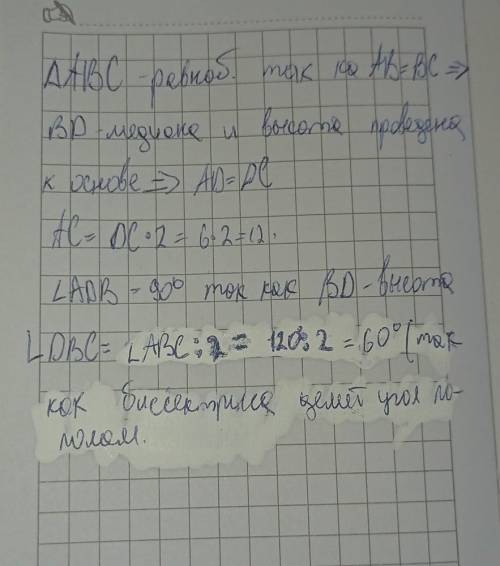 ΔABC - равноб. так ка AB=BC ⇒
BD-медиана и высота проведена
к основе ⇒ AD=DC
AC= DC·2 = 6·2=12.
∠ADB = 90° так как BD-высота
∠DBC= ∠ABC:2 = 120:2 = 60° (так
как биссектриса делит угол по-
полам.